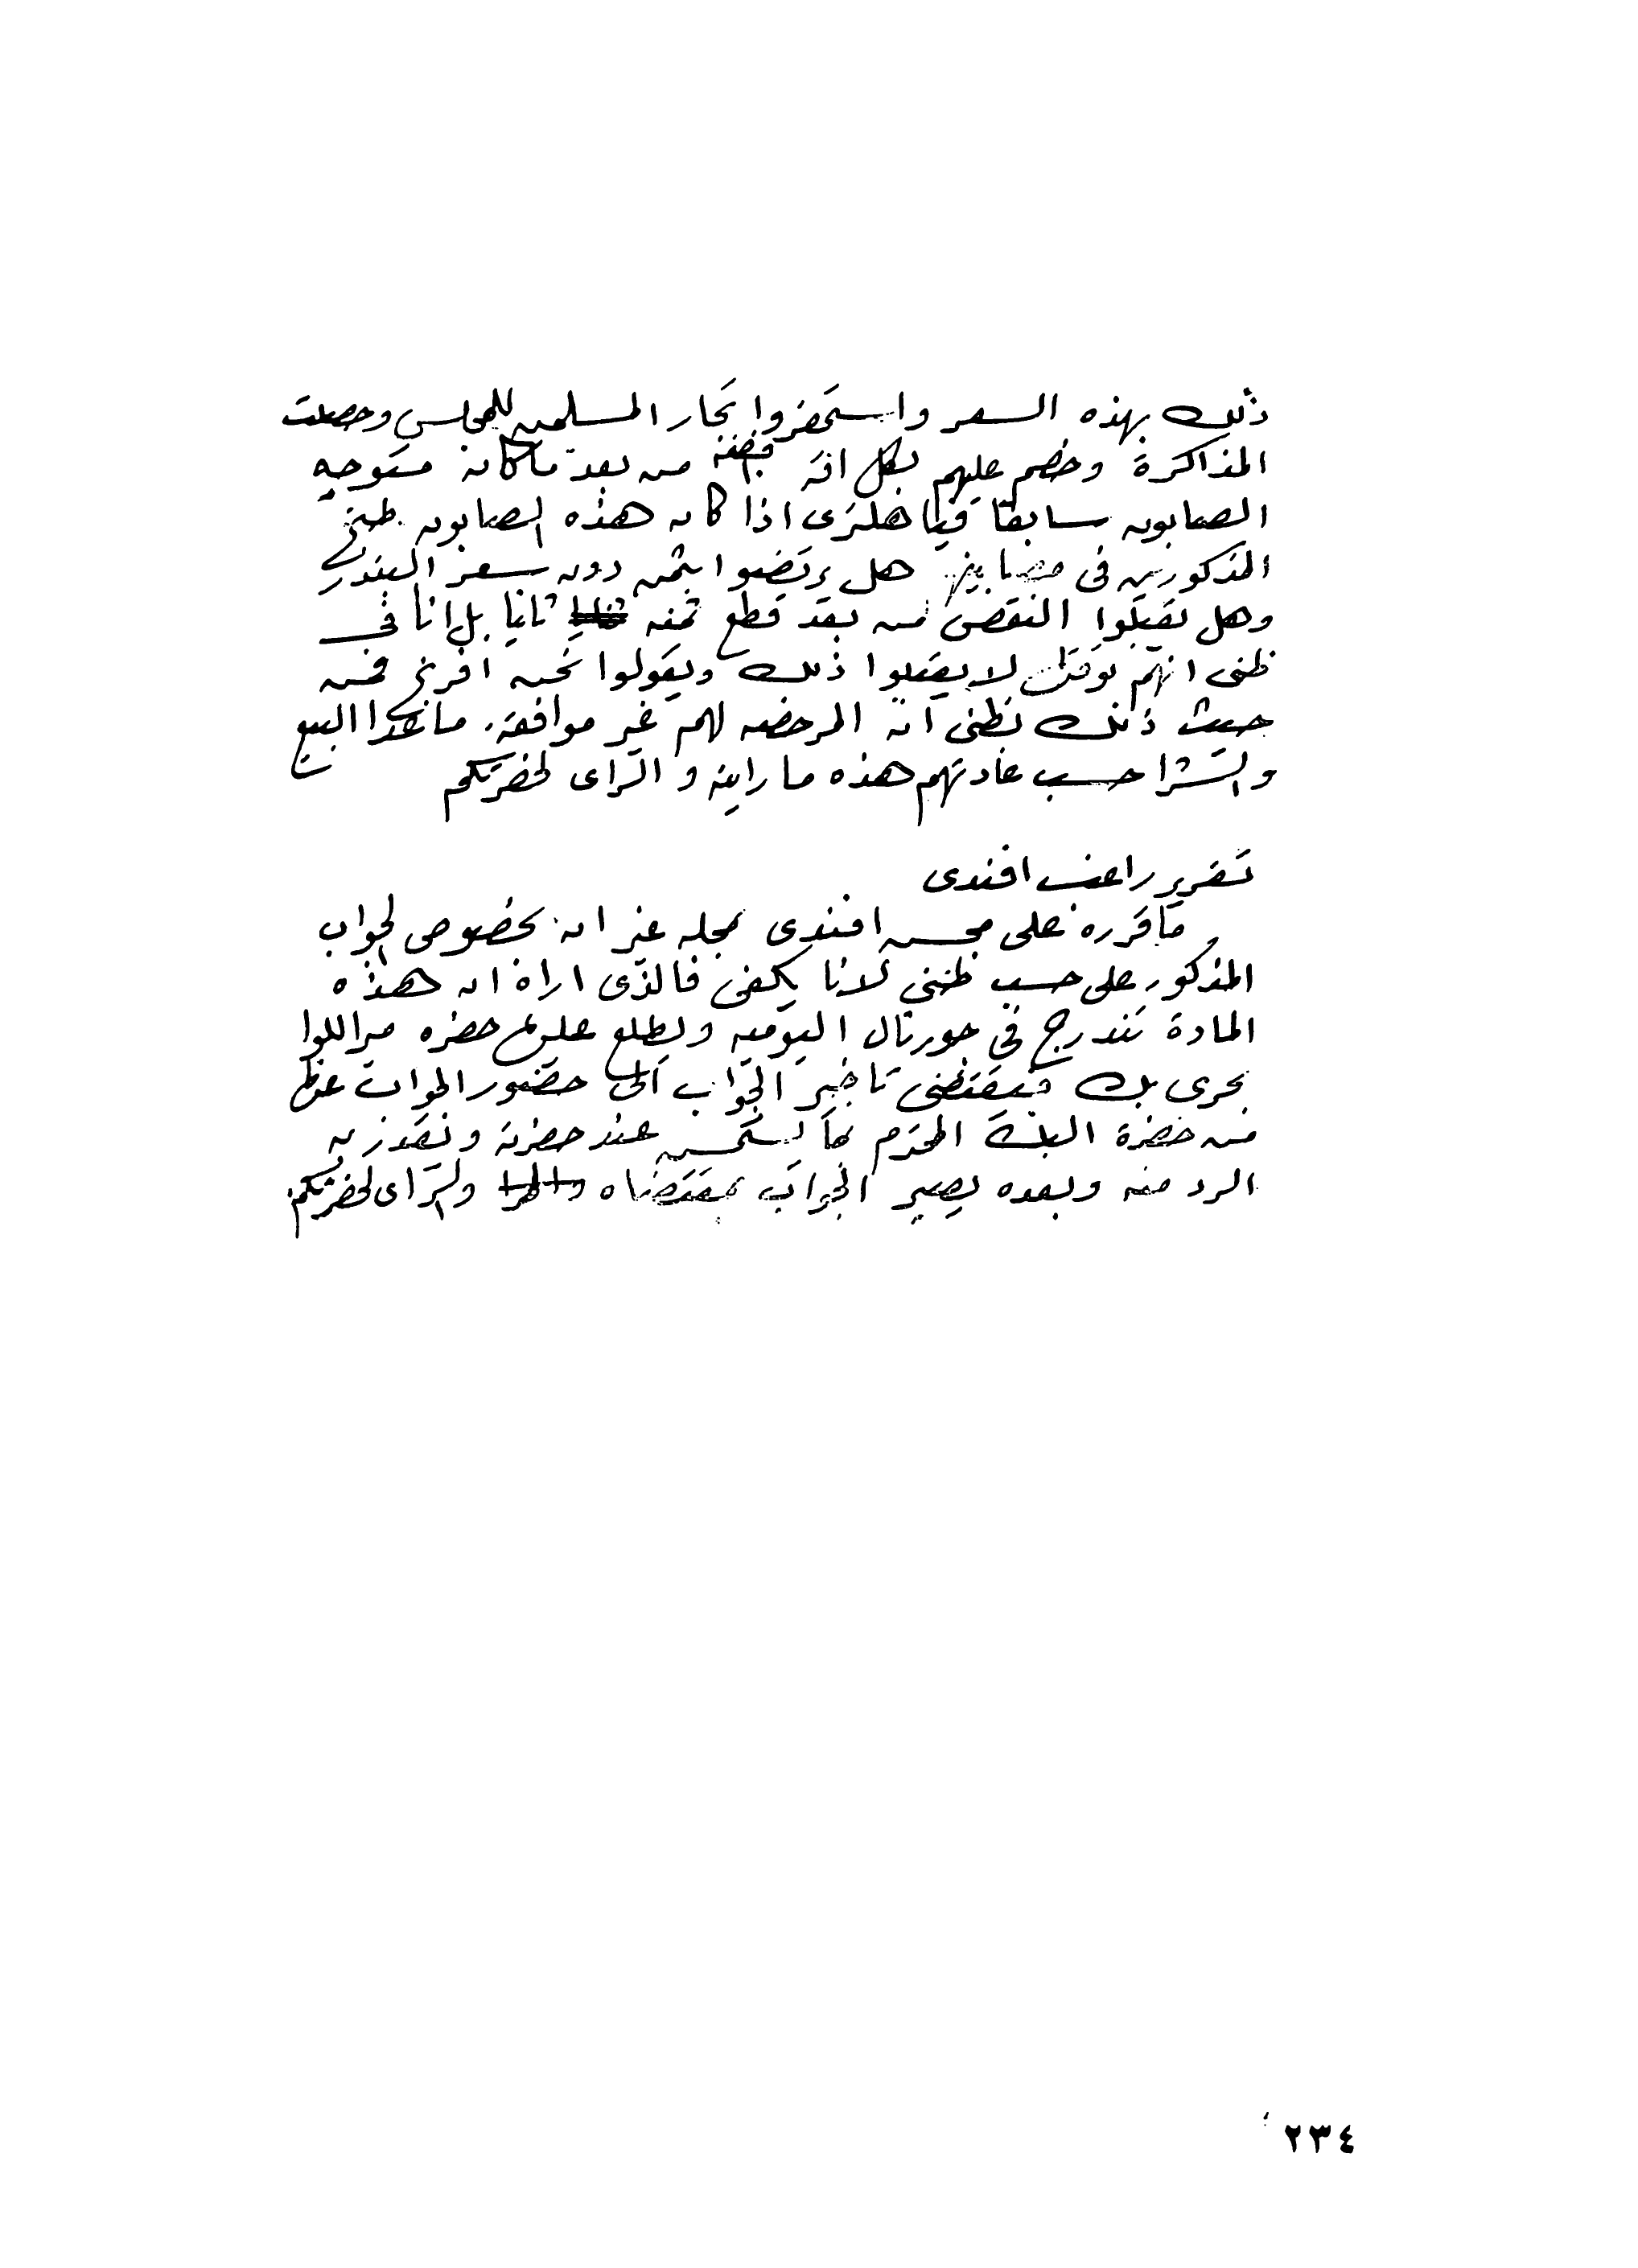 ذلك بهذه السعر واستحضروا تجار المسلمين للمجلس وحصلت
المذاكرة وخصم عليهم بكل اقة فضة من بعد ما كان متوجه
الصابون سابقا فيا هلترى اذا كان هذه الصابون طبخ
المذكورين في مصابينهم هل يرتضوا بثمن دون سعر البندر
وهل يقبلوا النقص من بعد قطع ثمنه ثانيا بل انا في
ظني انهم لا يقبلوا ذلك ويقولوا نحن افرنج فمن
حيث ذلك نظن ان المرخصه لهم غير موافقة ما عدا البيع
والشرا حسب عادتهم هذه ما رايته والراى لحضرتكم
تقرير راغب افندى
ما قرره على محسن افندى بمحله غير ان بخصوص الجواب
المذكور على حسب ظني لانا يكفي فالذى اراه ان هذه
المادة تندرج في جورنال اليوميه ويطلع عليها حضرة مير اللوا
بحرى بك فيقتضى تاخير الجواب الى حضور الجواب عنها
من حضرة البك المحترم بما يستحسن عند حضرته
الرد منه وبعده يصير الجواب بمقتضاه والراى لحضرتكم
٢٣٤